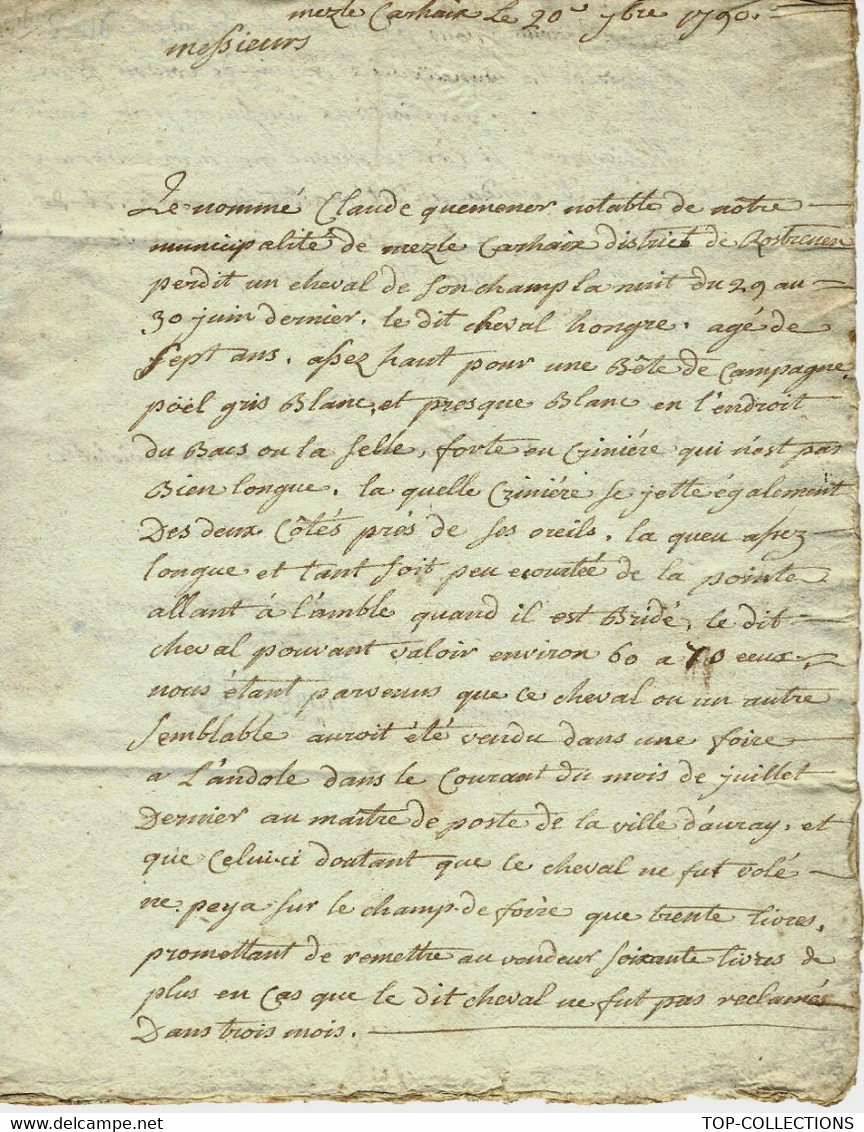 mezle Carhaix le 20e 7bre 1790.
messieurs
Le nommé Claude quemener notable de nôtre
municipalité de mezle Carhaix district de Rostrenen
perdit un cheval de son champ la nuit du 29 au
30 juin dernier. le dit cheval hongre. agé de
sept ans. assez haut pour une Bête de Campagne,
poël gris Blanc, et presque Blanc en l'endroit
du Bacs ou la selle, forte en Criniére qui n'est pas
Bien longue. la quelle Criniére se jette également
Des deux Côtés prés de ses oreils. la queu assez
longue et tant soit peu ecourtée de la pointe
allant á l'amble quand il est Bridé, le dit
cheval pouvant valoir environ 60 a 70 ecux
nous étant parvenus que ce cheval ou un autre
semblable auroit été vendu dans une foire
a L'andole dans le Courant du mois de juillet
Dernier au maître de poste de la ville d'auray. et
que Celui-ci doutant que le cheval ne fut volé
ne peya sur le champ de foire que trente livres.
promettant de remettre au vendeur soixante livres de
plus en Cas que le dit cheval ne fut pas reclamés
Dans trois mois.
TOP-COLLECTIONS